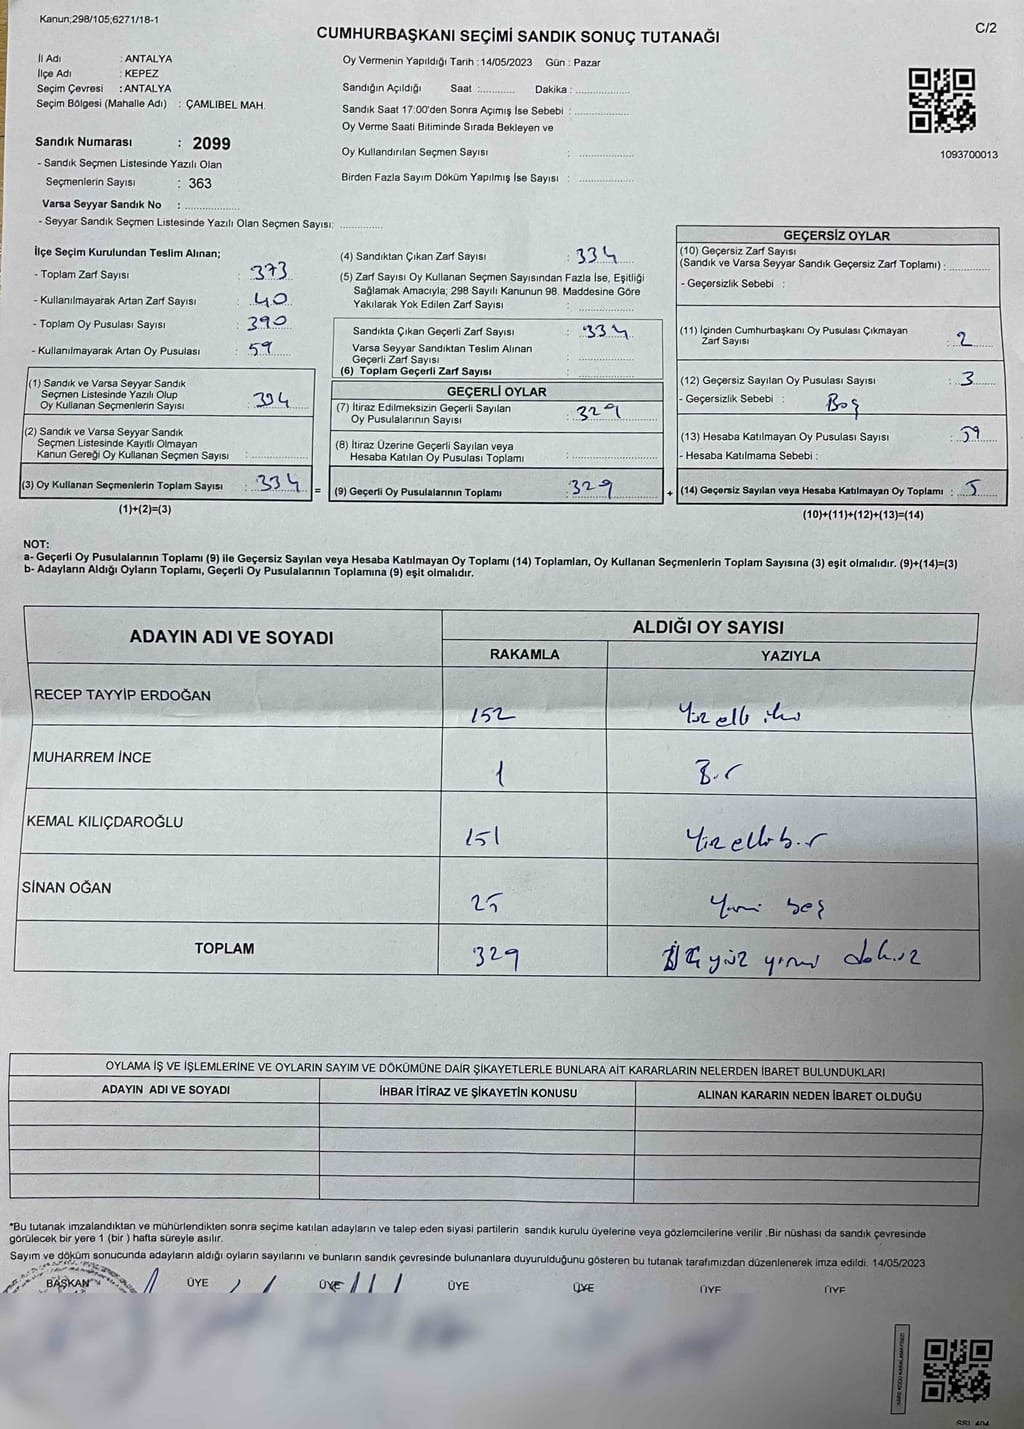 Kanun;298/105;6271/18-1
C/2
CUMHURBAŞKANI SEÇİMİ SANDIK SONUÇ TUTANAĞI
İl Adı : ANTALYA
İlçe Adı : KEPEZ
Seçim Çevresi : ANTALYA
Seçim Bölgesi (Mahalle Adı) : ÇAMLIBEL MAH.
Sandık Numarası : 2099
- Sandık Seçmen Listesinde Yazılı Olan
Seçmenlerin Sayısı : 363
Varsa Seyyar Sandık No : ................
- Seyyar Sandık Seçmen Listesinde Yazılı Olan Seçmen Sayısı: ............
Oy Vermenin Yapıldığı Tarih : 14/05/2023 Gün : Pazar
Sandığın Açıldığı Saat :............ Dakika :..................
Sandık Saat 17:00'den Sonra Açımış İse Sebebi : ..................
Oy Verme Saati Bitiminde Sırada Bekleyen ve
Oy Kullandırılan Seçmen Sayısı : ..................
Birden Fazla Sayım Döküm Yapılmış İse Sayısı : ..................
1093700013
İlçe Seçim Kurulundan Teslim Alınan;
- Toplam Zarf Sayısı : 373
- Kullanılmayarak Artan Zarf Sayısı : 40
- Toplam Oy Pusulası Sayısı : 390
- Kullanılmayarak Artan Oy Pusulası : 59
(1) Sandık ve Varsa Seyyar Sandık
Seçmen Listesinde Yazılı Olup
Oy Kullanan Seçmenlerin Sayısı : 334
(2) Sandık ve Varsa Seyyar Sandık
Seçmen Listesinde Kayıtlı Olmayan
Kanun Gereği Oy Kullanan Seçmen Sayısı : ..................
(3) Oy Kullanan Seçmenlerin Toplam Sayısı : 334 =
(1)+(2)=(3)
(4) Sandıktan Çıkan Zarf Sayısı : 334
(5) Zarf Sayısı Oy Kullanan Seçmen Sayısından Fazla İse, Eşitliği
Sağlamak Amacıyla; 298 Sayılı Kanunun 98. Maddesine Göre
Yakılarak Yok Edilen Zarf Sayısı : ..................
Sandıkta Çıkan Geçerli Zarf Sayısı : 334
Varsa Seyyar Sandıktan Teslim Alınan
Geçerli Zarf Sayısı : ..................
(6) Toplam Geçerli Zarf Sayısı : ..................
GEÇERLİ OYLAR
(7) İtiraz Edilmeksizin Geçerli Sayılan
Oy Pusulalarının Sayısı : 329
(8) İtiraz Üzerine Geçerli Sayılan veya
Hesaba Katılan Oy Pusulası Toplamı : ..................
(9) Geçerli Oy Pusulalarının Toplamı : 329 +
GEÇERSİZ OYLAR
(10) Geçersiz Zarf Sayısı
(Sandık ve Varsa Seyyar Sandık Geçersiz Zarf Toplamı) : ............
- Geçersizlik Sebebi :
(11) İçinden Cumhurbaşkanı Oy Pusulası Çıkmayan
Zarf Sayısı : 2
(12) Geçersiz Sayılan Oy Pusulası Sayısı : 3
- Geçersizlik Sebebi : Boş
(13) Hesaba Katılmayan Oy Pusulası Sayısı : 59
- Hesaba Katılmama Sebebi :
(14) Geçersiz Sayılan veya Hesaba Katılmayan Oy Toplamı : 5
(10)+(11)+(12)+(13)=(14)
NOT:
a- Geçerli Oy Pusulalarının Toplamı (9) ile Geçersiz Sayılan veya Hesaba Katılmayan Oy Toplamı (14) Toplamları, Oy Kullanan Seçmenlerin Toplam Sayısına (3) eşit olmalıdır. (9)+(14)=(3)
b- Adayların Aldığı Oyların Toplamı, Geçerli Oy Pusulalarının Toplamına (9) eşit olmalıdır.
ADAYIN ADI VE SOYADI
ALDIĞI OY SAYISI
RAKAMLA YAZIYLA
RECEP TAYYİP ERDOĞAN 152 Yüz elli iki
MUHARREM İNCE 1 Bir
KEMAL KILIÇDAROĞLU 151 Yüz elli bir
SİNAN OĞAN 25 Yirmi beş
TOPLAM 329 Üç yüz yirmi dokuz
OYLAMA İŞ VE İŞLEMLERİNE VE OYLARIN SAYIM VE DÖKÜMÜNE DAİR ŞİKAYETLERLE BUNLARA AİT KARARLARIN NELERDEN İBARET BULUNDUKLARI
ADAYIN ADI VE SOYADI İHBAR İTİRAZ VE ŞİKAYETİN KONUSU ALINAN KARARIN NEDEN İBARET OLDUĞU
*Bu tutanak imzalandıktan ve mühürlendikten sonra seçime katılan adayların ve talep eden siyasi partilerin sandık kurulu üyelerine veya gözlemcilerine verilir .Bir nüshası da sandık çevresinde
görülecek bir yere 1 (bir ) hafta süreyle asılır.
Sayım ve döküm sonucunda adayların aldığı oyların sayılarını ve bunların sandık çevresinde bulunanlara duyurulduğunu gösteren bu tutanak tarafımızdan düzenlenerek imza edildi. 14/05/2023
BAŞKAN ÜYE ÜYE ÜYE ÜYE ÜYE ÜYE